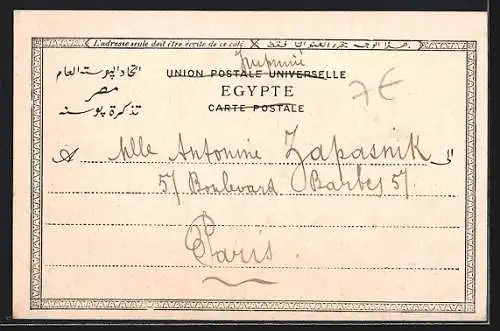 L'adresse seule doit être écrite de ce côté
هذا الوجه يحرر العنوان فقط
Imprimé
اتحاد البوستة العام
مصر
تذكرة بوسته
UNION POSTALE UNIVERSELLE
EGYPTE
CARTE POSTALE
7€
A Mlle Antonine Zapasnik الى
57 Boulevard Barbès 57
Paris